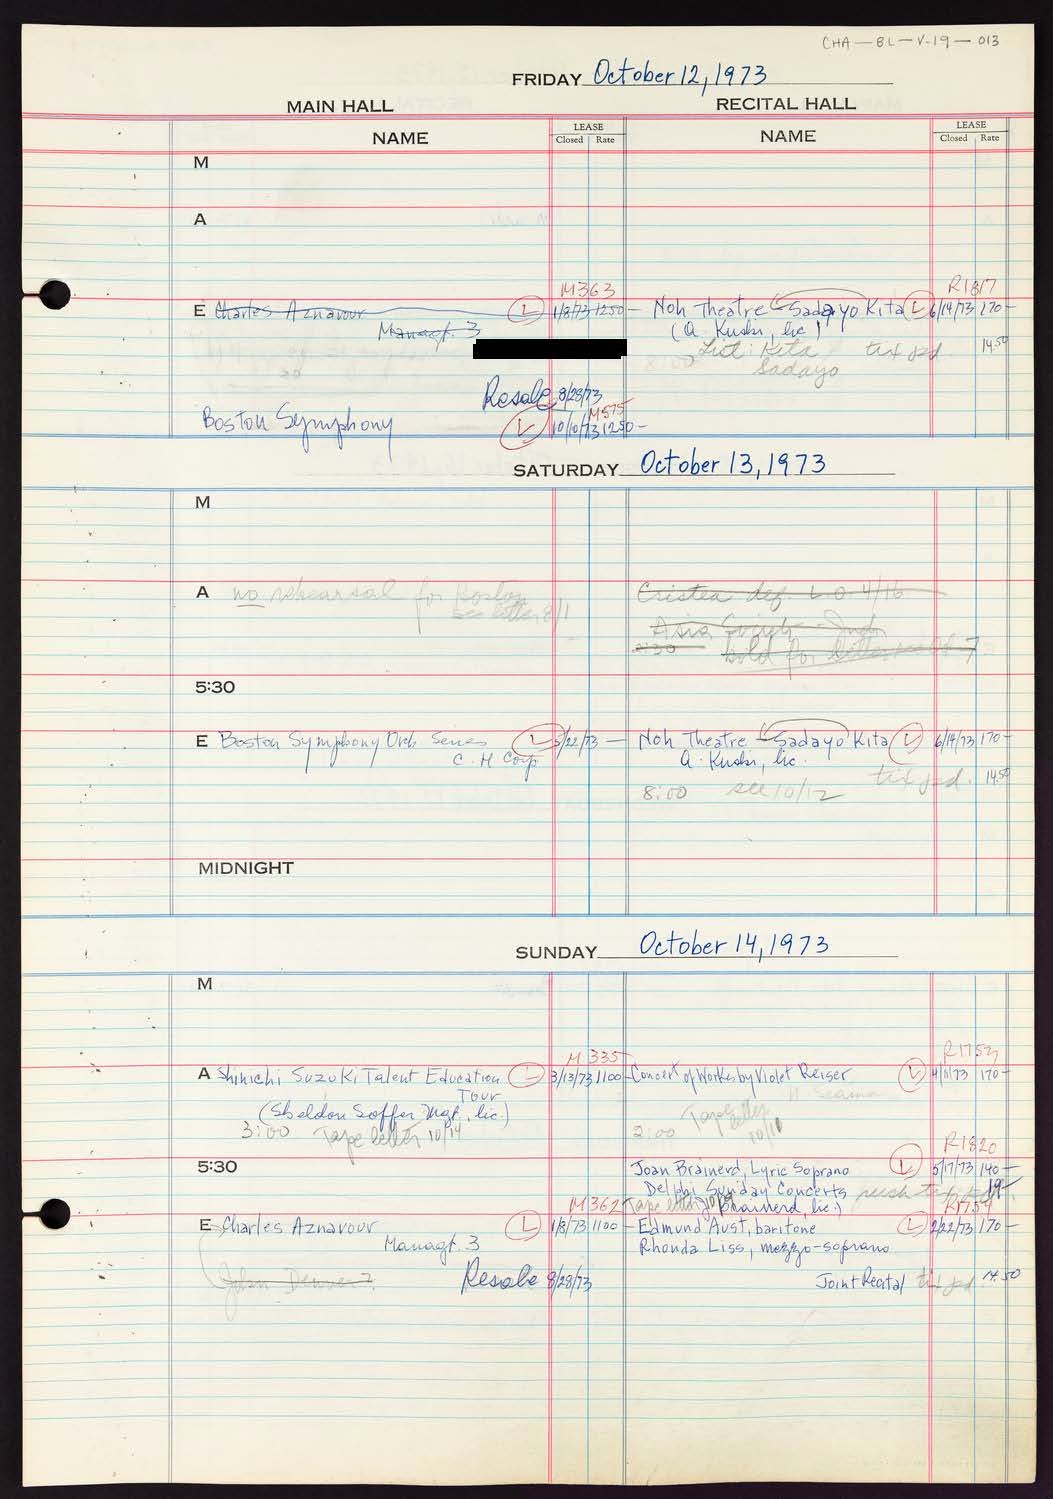 CHA-BL-V-19-013
FRIDAY October 12, 1973
MAIN HALL RECITAL HALL
NAME LEASE Closed Rate NAME LEASE Closed Rate
M
A
M363 R1817
E Charles Aznavour L 1/8/73 1250- Noh Theatre Sadayo Kita L 6/14/73 170-
Managt. 3 (A. Kushi, lic)
8:00 List: Kita Sadayo 14.50
Resale 8/28/73
M575
Boston Symphony L 10/10/73 1250-
SATURDAY October 13, 1973
M
A no rehearsal for Boston Cristea def. L.O. 4/16
see letter 8/1 Asia Society
2:30 hold for letter
5:30
E Boston Symphony Orch Series L 5/22/73 - Noh Theatre Sadayo Kita L 6/14/73 170-
C. H Corp A. Kushi, lic.
8:00 see 10/12 14.50
MIDNIGHT
SUNDAY October 14, 1973
M
M335 R1753
A Shinichi Suzuki Talent Education L 3/13/73 1100- Concert of Works by Violet Reiser L 4/11/73 170-
Tour
(Sheldon Soffer Mgt, lic.)
3:00 Tape letter 10/14 2:00 Tape letter 10/10
R1820
5:30 Joan Brainerd, Lyric Soprano L 5/17/73 140-
Delphi Sunday Concerts 19-
M362 Tape letter Brainerd, lic.) R1754
E Charles Aznavour L 1/8/73 1100- Edmund Aust, baritone L 2/22/73 170-
Managt. 3 Rhonda Liss, mezzo-soprano
John Denver? Resale 8/28/73 Joint Recital 14.50